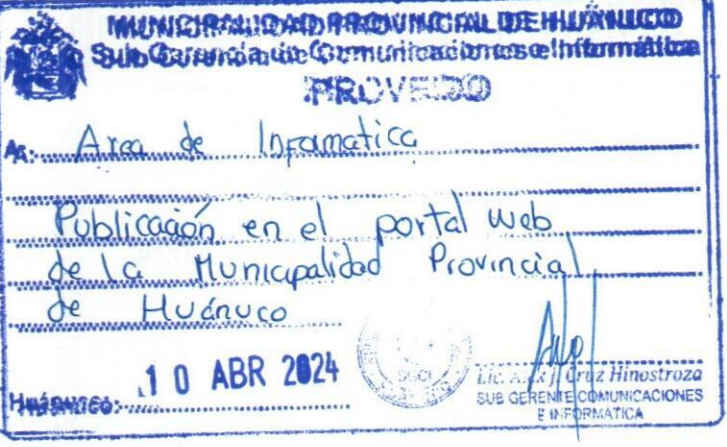 MUNICIPALIDAD PROVINCIAL DE HUÁNUCO
Sub Gerencia de Comunicaciones e Informática
PROVEIDO
A: Area de Informatica
Publicación en el portal web
de la Municipalidad Provincial
de Huánuco
Huánuco: 10 ABR 2024
SGCI
Lic. J. Cruz Hinostroza
SUB GERENTE COMUNICACIONES
E INFORMATICA